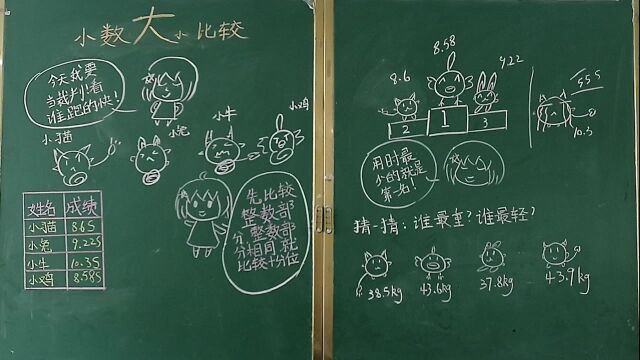 小数大小比较
今天我要
当裁判!看
谁跑的快!
小猫
小兔
小牛
小鸡
姓名 成绩
小猫 8.65
小兔 9.225
小牛 10.35
小鸡 8.585
先比较
整数部
分,整数部
分相同,就
比较十分位
8.6
8.58
9.22
2
1
3
10.3
用时最
小的就是
第一名!
猜一猜:谁最重?谁最轻?
38.5kg
43.6kg
37.8kg
43.9kg